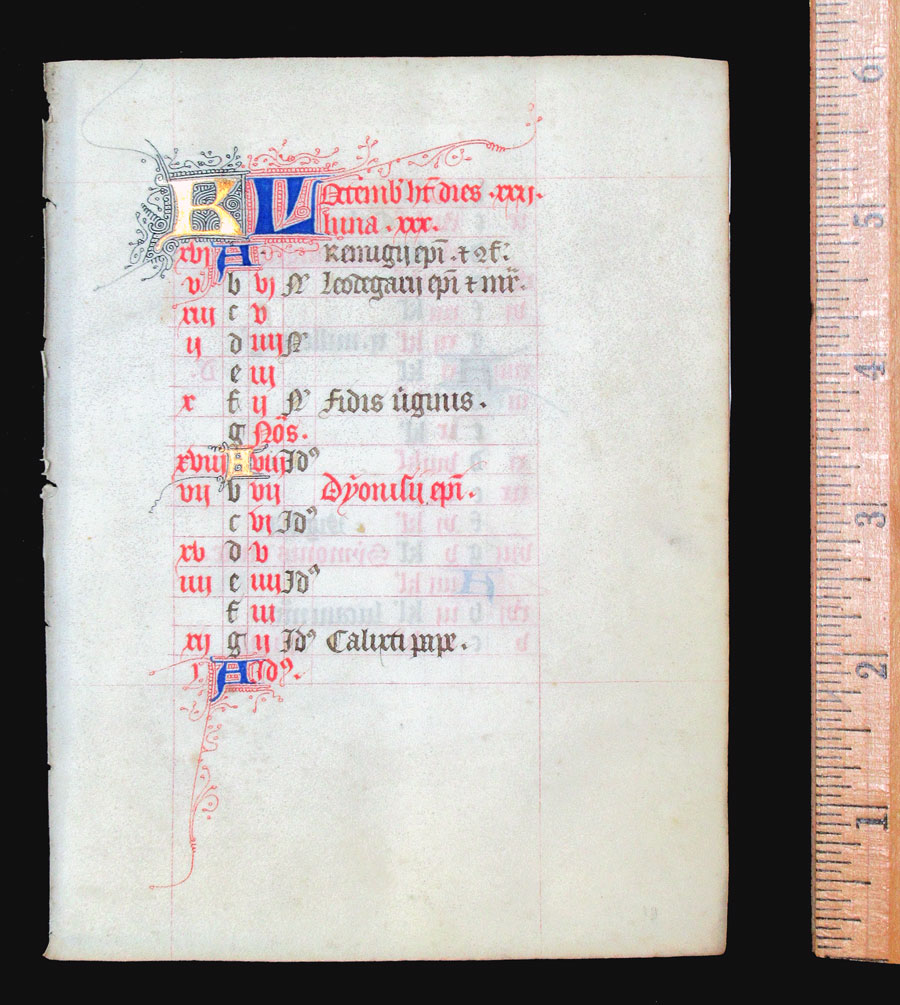 KL Octemb' ht dies .xxxj.
luna .xxx.
xvj A Remigij epi .t al'.
v b vj N' leodegarij epi t mr'.
xiij c v
ij d iiij N'
e iij
x f ij N' fidis v'ginis .
g Nos.
xviij A viij Id'
vij b vij Dyonisij epi .
c vj Id'
xv d v
iiij e iiij Id'
f iij
xij g ij Id' Calixti pape .
j A Idus.
6
5
4
3
2
1